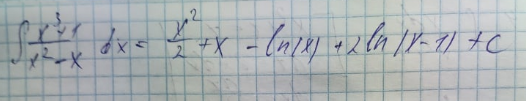 ∫ (x³+1)/(x²-x) dx = x²/2 + x - ln|x| + 2ln|x-1| + c